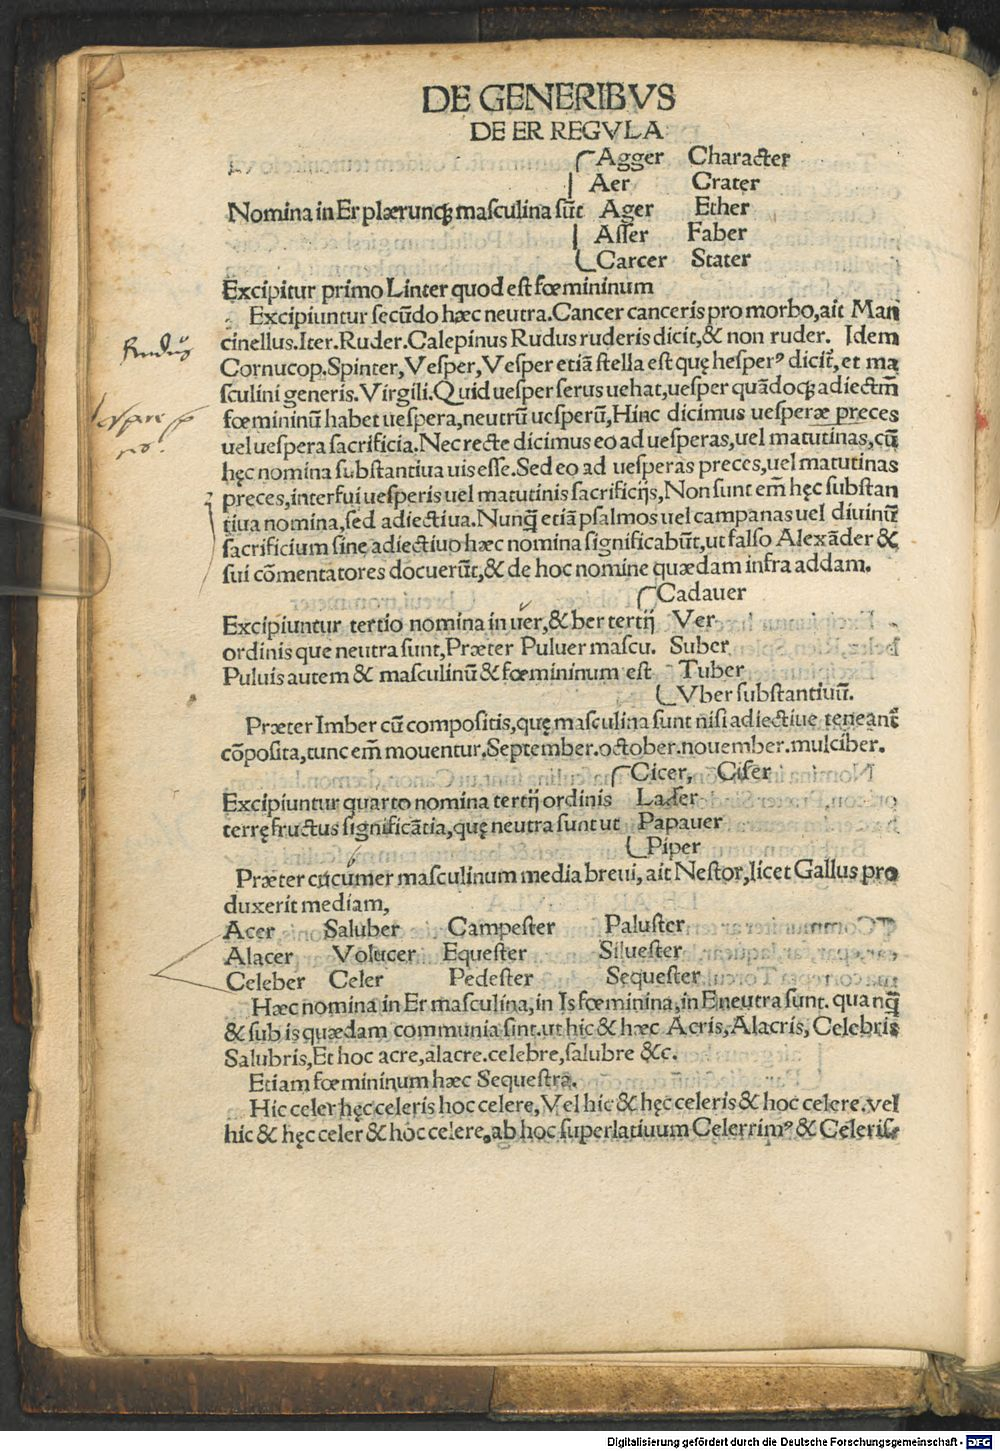 DE GENERIBVS
DE ER REGVLA
Agger Character
Aer Crater
Nomina in Er plærunqꝫ masculina sũt Ager Ether
Asser Faber
Carcer Stater
Excipitur primo Linter quod est fœmininum
Excipiuntur secũdo hæc neutra. Cancer canceris pro morbo, ait Man
cinellus. Iter. Ruder. Calepinus Rudus ruderis dicit, & non ruder. Idem
Cornucop. Spinter, Vesper, Vesper etiã stella est quę hesperꝰ dicit᷑, et ma
sculini generis. Virgili. Quid uesper serus uehat, uesper quãdocqꝫ adiectm̃
fœmininũ habet uespera, neutrũ uesperũ, Hinc dicimus uesperæ preces
uel uespera sacrificia. Nec recte dicimus eo ad uesperas, uel matutinas, cũ
hęc nomina substantiua uis esse. Sed eo ad uesperas preces, uel matutinas
preces, interfui uesperis uel matutinis sacrificijs, Non sunt em̃ hęc substan
tiua nomina, sed adiectiua. Nunq̃ etiã psalmos uel campanas uel diuinũ
sacrificium sine adiectiuo hæc nomina significabũt, ut falso Alexãder &
sui cõmentatores docuerũt, & de hoc nomine quædam infra addam.
Cadauer
Excipiuntur tertio nomina in uer, & ber tertij Ver
ordinis que neutra sunt, Præter Puluer mascu. Suber
Puluis autem & masculinũ & fœmininum est Tuber
Vber substantiuũ.
Præter Imber cũ compositis, quę masculina sunt nisi adiectiue teneant᷑
cõposita, tunc em̃ mouentur. September. october. nouember. mulciber.
Cicer, Cifer
Excipiuntur quarto nomina tertij ordinis Laser
terrę fructus significãtia, quę neutra sunt ut Papauer
Piper
Præter cucumer masculinum media breui, ait Nestor, licet Gallus pro
duxerit mediam,
Acer Saluber Campester Paluster
Alacer Volucer Equester Siluester
Celeber Celer Pedester Sequester
Hæc nomina in Er masculina, in Is fœminina, in E neutra sunt. quanq̃
& sub is quædam communia sint. ut hic & hæc Acris, Alacris, Celebris
Salubris, Et hoc acre, alacre. celebre, salubre &c.
Etiam fœmininum hæc Sequestra.
Hic celer hęc celeris hoc celere, Vel hic & hęc celeris & hoc celere. vel
hic & hęc celer & hoc celere, ab hoc superlatiuum Celerrimꝰ & Celeris-
Rudus
Digitalisierung gefördert durch die Deutsche Forschungsgemeinschaft - DFG